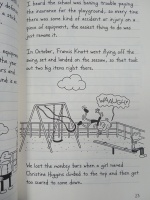 I heard the school was having trouble paying
the insurance for the playground, so every time
there was some kind of accident or injury on a
piece of equipment, the easiest thing to do was
just remove it.
In October, Francis Knott went flying off the
swing set and landed on the seesaw, so that took
out two big items right there.
WAUUGH!
We lost the monkey bars when a girl named
Christine Higgins climbed to the top and then got
too scared to come down.
23